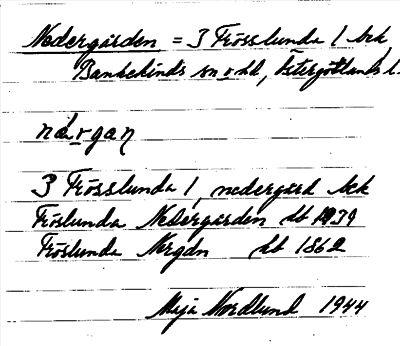 Nedergården = 3 Frösslunda 1 bek
Bankekinds sn o hd, Östergötlands l.
3 Frösslunda 1, nedergård bek
Fröslunda Nedergården hb 1939
Fröslunda Nergdn hb 1862
Maja Nordlund 1944